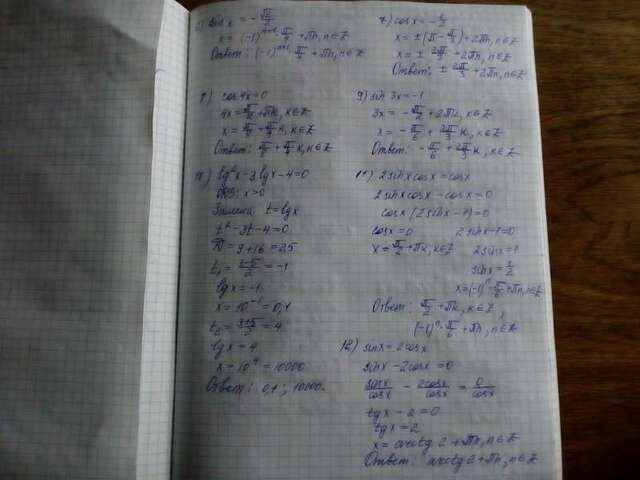 sin x = -√2/2
x = (-1)ⁿ⁺¹ · π/4 + πn, n∈Z
Ответ: (-1)ⁿ⁺¹ π/4 + πn, n∈Z
7) cos x = -1/2
x = ±(π - π/3) + 2πn, n∈Z
x = ± 2π/3 + 2πn, n∈Z
Ответ: ± 2π/3 + 2πn, n∈Z
8) cos 4x = 0
4x = π/2 + πk, k∈Z
x = π/8 + π/4 k, k∈Z
Ответ: π/8 + π/4 k, k∈Z
9) sin 3x = -1
3x = -π/2 + 2πk, k∈Z
x = -π/6 + 2π/3 k, k∈Z
Ответ: -π/6 + 2π/3 k, k∈Z
10) lg²x - 3lgx - 4 = 0
ОДЗ: x > 0
Замена t = lgx
t² - 3t - 4 = 0
D = 9 + 16 = 25
t₁ = (3-5)/2 = -1
lgx = -1
x = 10⁻¹ = 0,1
t₂ = (3+5)/2 = 4
lgx = 4
x = 10⁴ = 10000
Ответ: 0,1; 10000.
11) 2sinxcosx = cosx
2sinxcosx - cosx = 0
cosx(2sinx - 1) = 0
cosx = 0 2sinx - 1 = 0
x = π/2 + πk, k∈Z 2sinx = 1
sinx = 1/2
x = (-1)ⁿ · π/6 + πn, n∈Z
Ответ: π/2 + πk, k∈Z;
(-1)ⁿ · π/6 + πn, n∈Z
12) sinx = 2cosx
sinx - 2cosx = 0
sinx/cosx - 2cosx/cosx = 0/cosx
tgx - 2 = 0
tgx = 2
x = arctg 2 + πn, n∈Z
Ответ: arctg 2 + πn, n∈Z